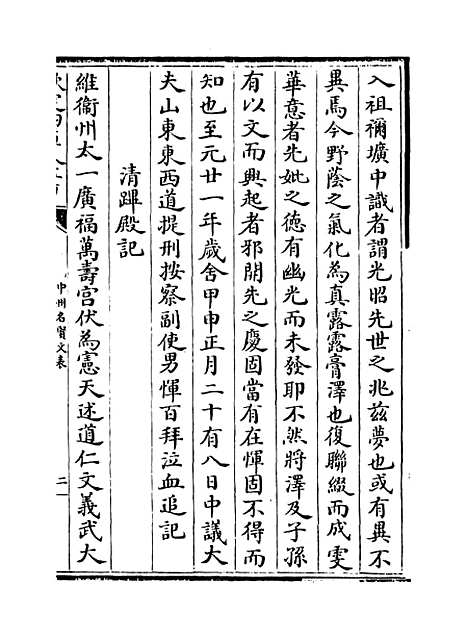 入祖禰壙中識者謂光昭先世之兆兹夢也或有異不
異焉今野蔭之氣化為真露露膏澤也復聯綴而成雯
華意者先妣之德有幽光而未發耶不然將澤及子孫
有以文而興起者邪閉先之慶固當有在惲固不得而
知也至元廿一年歲舍甲申正月二十有八日中議大
夫山東東西道提刑按察副使男惲百拜泣血追記
清蹕殿記
維衞州太一廣福萬壽宫伏為憲天述道仁文義武大
中州名賢文表
二